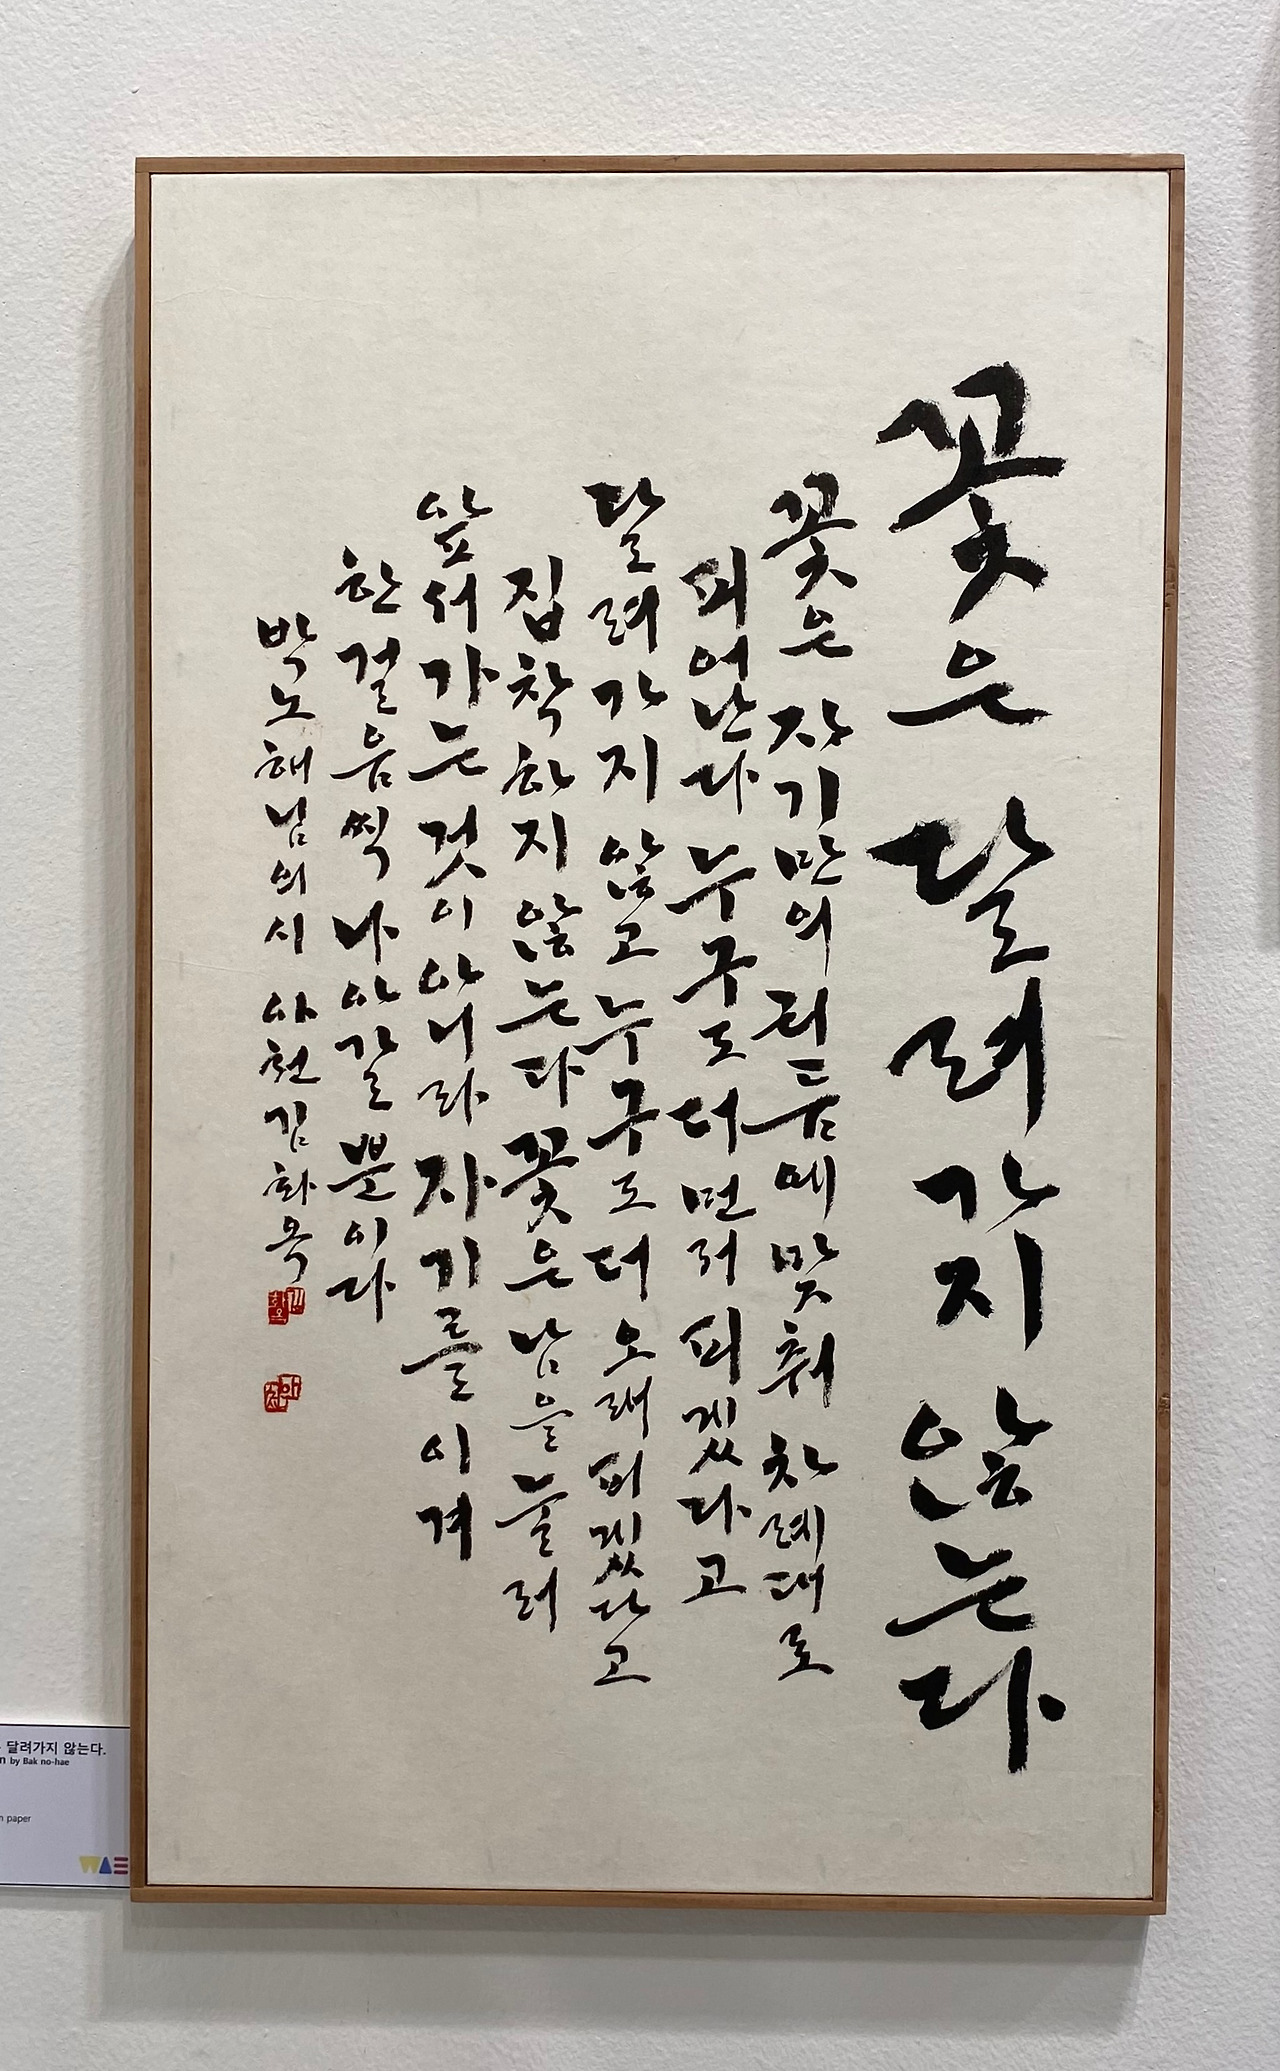 꽃은 달려가지 않는다
꽃은 자기만의 리듬에 맞춰 차례대로
피어난다 누구도 더 먼저 피겠다고
달려가지 않고 누구도 더 오래 피겠다고
집착하지 않는다 꽃은 남을 눌러
앞서가는 것이 아니라 자기를 이겨
한 걸음씩 나아갈 뿐이다
박노해님의 시 아천 김화옥
달려가지 않는다.
by Bak no-hae
paper
WAE